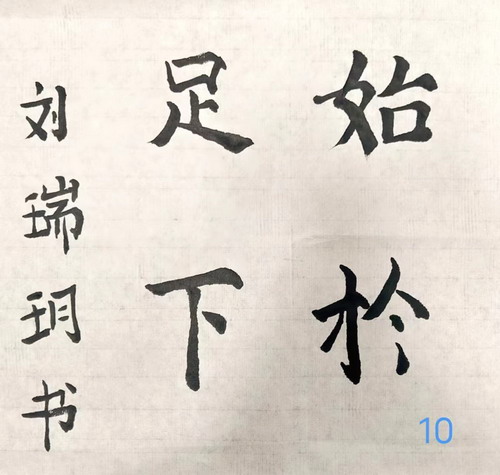 始於
足下
刘瑞玥书
10